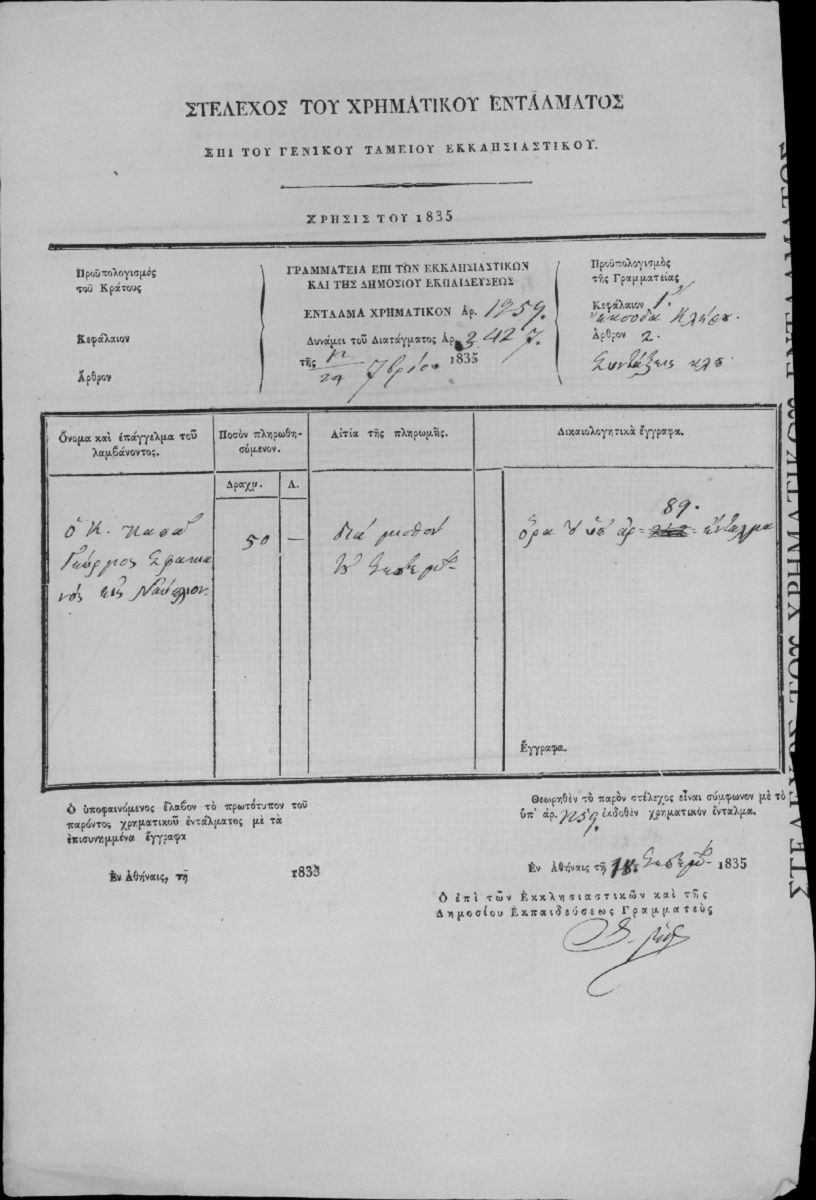 ΣΤΕΛΕΧΟΣ ΤΟΥ ΧΡΗΜΑΤΙΚΟΥ ΕΝΤΑΛΜΑΤΟΣ
ΕΠΙ ΤΟΥ ΓΕΝΙΚΟΥ ΤΑΜΕΙΟΥ ΕΚΚΛΗΣΙΑΣΤΙΚΟΥ.
ΧΡΗΣΙΣ ΤΟΥ 1835
Προϋπολογισμὸς
τοῦ Κράτους
Κεφάλαιον
Ἄρθρον
ΓΡΑΜΜΑΤΕΙΑ ΕΠΙ ΤΩΝ ΕΚΚΛΗΣΙΑΣΤΙΚΩΝ
ΚΑΙ ΤΗΣ ΔΗΜΟΣΙΟΥ ΕΚΠΑΙΔΕΥΣΕΩΣ
ΕΝΤΑΛΜΑ ΧΡΗΜΑΤΙΚΟΝ Ἀρ. 1259.
Δυνάμει τοῦ Διατάγματος Ἀρ. 2427.
τῆς 12/24 7βρίου 1835
Προϋπολογισμὸς
τῆς Γραμματείας
Κεφάλαιον 1.
Κλήρου.
Ἄρθρον 2.
Συντάξεις κλπ
Ὄνομα καὶ ἐπάγγελμα τοῦ
λαμβάνοντος.
Ποσὸν πληρωθη-
σόμενον.
Αἰτία τῆς πληρωμῆς.
Δικαιολογητικὰ ἔγγραφα.
Δραχμ. Λ.
ὁ Κ. Παπᾶ
Γεώργιος Σφακια
νός εἰς Ναύπλιον.
50 —
διὰ μισθὸν
Σεπτεμβρ.
89.
ὅρα ὑπ' ἀρ. ἔνταλμα
Ἔγγραφα.
Ὁ ὑποφαινόμενος ἔλαβον τὸ πρωτότυπον τοῦ
παρόντος χρηματικοῦ ἐντάλματος μὲ τὰ
ἐπισυνημμένα ἔγγραφα
Ἐν Ἀθήναις, τῇ 1835
Θεωρηθὲν τὸ παρὸν στέλεχος εἶναι σύμφωνον μὲ τὸ
ὑπ' ἀρ. 1259. ἐκδοθὲν χρηματικὸν ἔνταλμα.
Ἐν Ἀθήναις τῇ 18. Σεπτεμβρ. 1835
Ὁ ἐπὶ τῶν Ἐκκλησιαστικῶν καὶ τῆς
Δημοσίου Ἐκπαιδεύσεως Γραμματεὺς
ΣΤΕΛΕΧΟΣ ΤΟΥ ΧΡΗΜΑΤΙΚΟΥ ΕΝΤΑΛΜΑΤΟΣ